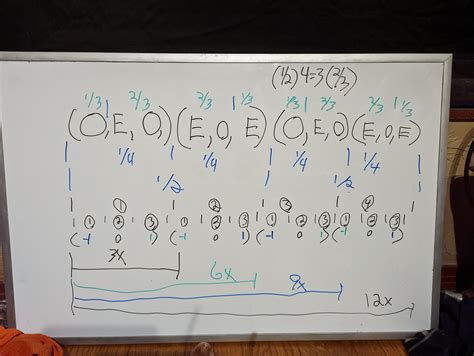 (1/2)4=3(2/3)
1/3 2/3 2/3 1/3 1/3 2/3 2/3 1/3
(O,E,O)(E,O,E)(O,E,O)(E,O,E)
1/4 1/4 1/4 1/4
1/2 1/2
1 2 3 4
1 2 3 1 2 3 1 2 3 1 2 3
(-1 0 1)(-1 0 1)(-1 0 1)(-1 0 1)
3x
6x
9x
12x